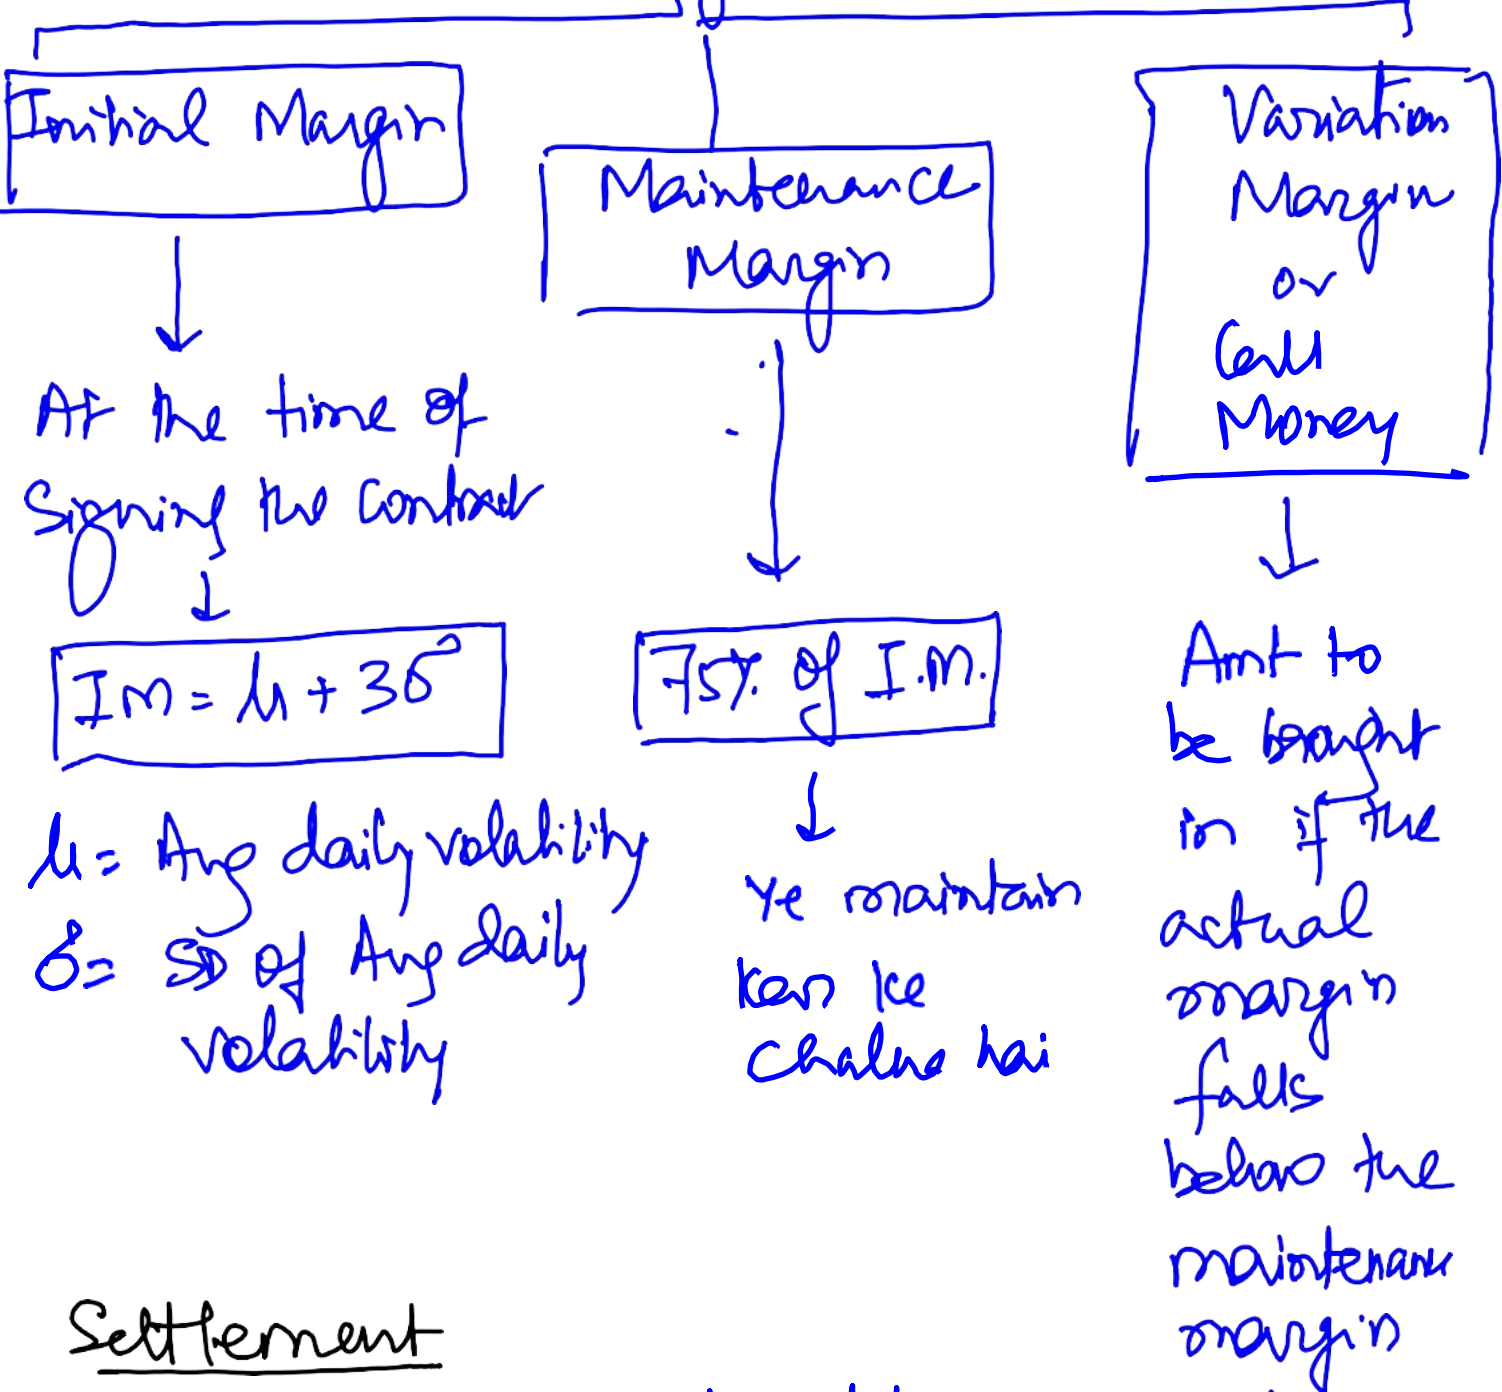 Initial Margin
At the time of
Signing the contract
IM = μ + 3σ
μ = Avg daily volatility
σ = SD of Avg daily
volatility
Maintenance
Margin
75% of I.M.
Ye maintain
kar ke
chalna hai
Variation
Margin
or
Call
Money
Amt to
be brought
in if the
actual
margin
falls
below the
maintenance
margin
Settlement